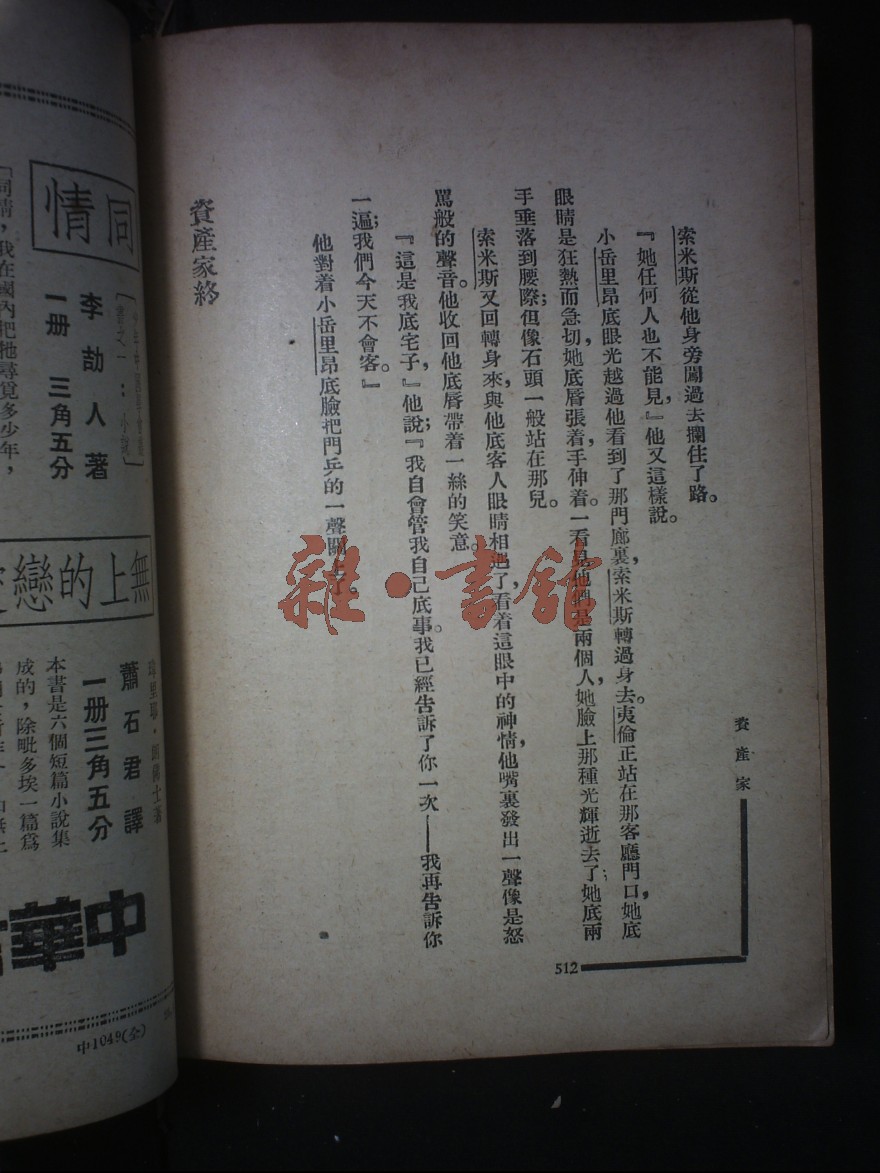 資產家
512
索米斯從他身旁闖過去攔住了路。
『她任何人也不能見，』他又這樣說。
小岳里昂底眼光越過他看到了那門廊裏，索米斯轉過身去。夷倫正站在那客廳門口，她底
眼睛是狂熱而急切，她底唇張着，手伸着。一看見他們是兩個人，她臉上那種光輝逝去了；她底兩
手垂落到腰際；但像石頭一般站在那兒。
索米斯又回轉身來，與他底客人眼睛相遇了，看着這眼中的神情，他嘴裏發出一聲像是怒
罵般的聲音。他收回他底唇帶着一絲的笑意。
『這是我底宅子，』他說；『我自會管我自己底事。我已經告訴了你一次——我再告訴你
一遍；我們今天不會客。』
他對着小岳里昂底臉把門乒的一聲關上了。
資產家終
雜·書館
同情
小說
李劼人著
一册 三角五分
「同情，我在國內把牠尋覓多少年，
無上的戀
蕭石君譯
一册三角五分
本書是六個短篇小說集
成的，除毗多埃一篇爲
中華
中1049(仝)